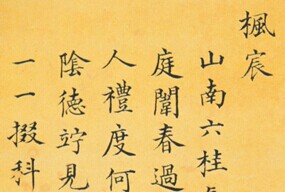 楓宸
山南六桂
庭闈春過
人禮度何
陰德竚見
一一掇科